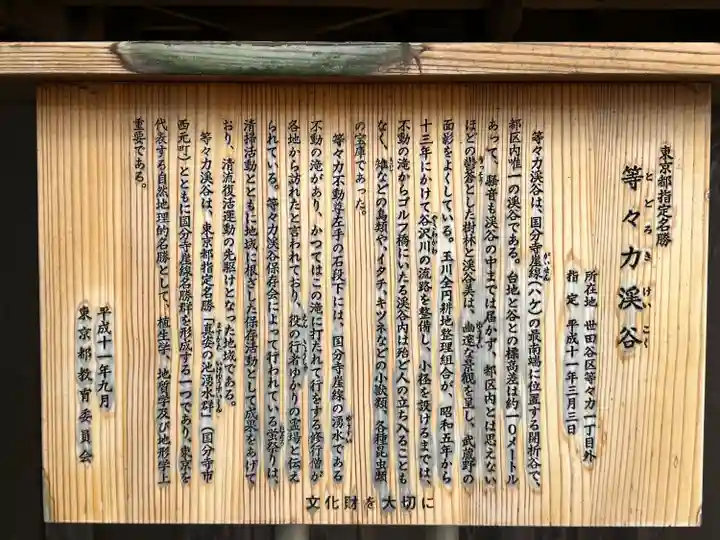 東京都指定名勝
等々力渓谷
とどろきけいこく
所在地 世田谷区等々力一丁目外
指定 平成十一年三月三日
等々力渓谷は、国分寺崖線(ハケ)の最南端に位置する開析谷で、
都区内唯一の渓谷である。台地と谷との標高差は約一〇メートル
あって、騒音も渓谷の中までは届かず、都区内とは思えない
ほどの鬱蒼とした樹林と渓谷美は、幽邃な景観を呈し、武蔵野の
面影をよくしている。玉川全円耕地整理組合が、昭和五年から
十三年にかけて谷沢川の流路を整備し、小径を設けるまでは、
不動の滝からゴルフ橋にいたる渓谷内は殆ど人の立ち入ることも
なく、雉などの鳥類や、イタチ、キツネなどの小獣類、各種昆虫類
の宝庫であった。
等々力不動尊左手の石段下には、国分寺崖線の湧水である
不動の滝があり、かつてはこの滝に打たれて行をする修行僧が
各地から訪れたと言われており、役の行者ゆかりの霊場と伝え
られている。等々力渓谷保存会によって行われている蛍祭りは、
清掃活動とともに地域に根ざした保存活動として成果をあげて
おり、清流復活運動の先駆けとなった地域である。
等々力渓谷は、東京都指定名勝「真姿の池湧水群」(国分寺市
西元町)とともに国分寺崖線名勝群を形成する一つであり、東京を
代表する自然地理的名勝として、植生学、地質学及び地形学上
重要である。
平成十一年九月
東京都教育委員会
文化財を大切に